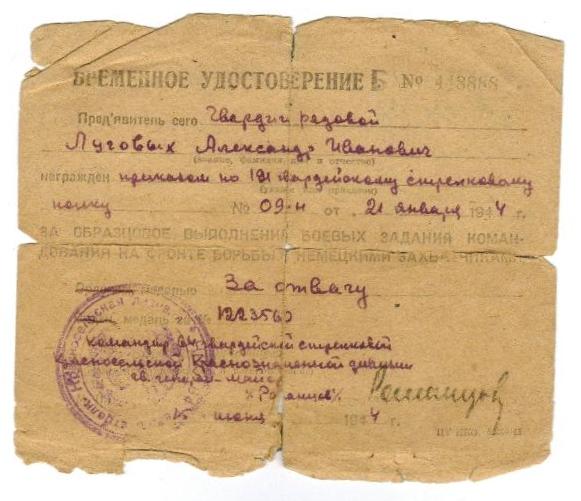 ВРЕМЕННОЕ УДОСТОВЕРЕНИЕ Б №
Пред'явитель сего Гвардии рядовой
Луговых Александр Иванович
(звание, фамилия, имя и отчество)
награжден приказом по 191 гвардейскому стрелковому
полку № 09-н от 21 января 1944 г.
ЗА ОБРАЗЦОВОЕ ВЫПОЛНЕНИЕ БОЕВЫХ ЗАДАНИЙ КОМАН-
ДОВАНИЯ НА ФРОНТЕ БОРЬБЫ С НЕМЕЦКИМИ ЗАХВАТЧИКАМИ
За отвагу
медаль 1223560
Командир 64 гвардейской стрелковой
Красносельской Краснознаменной дивизии
гв. генерал-майор
"Романцов"
15 1944 г.